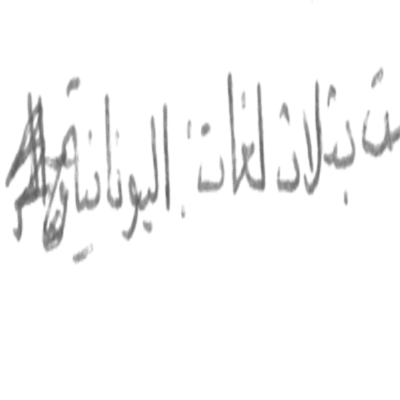 ت بثلاث لغات: اليونانية